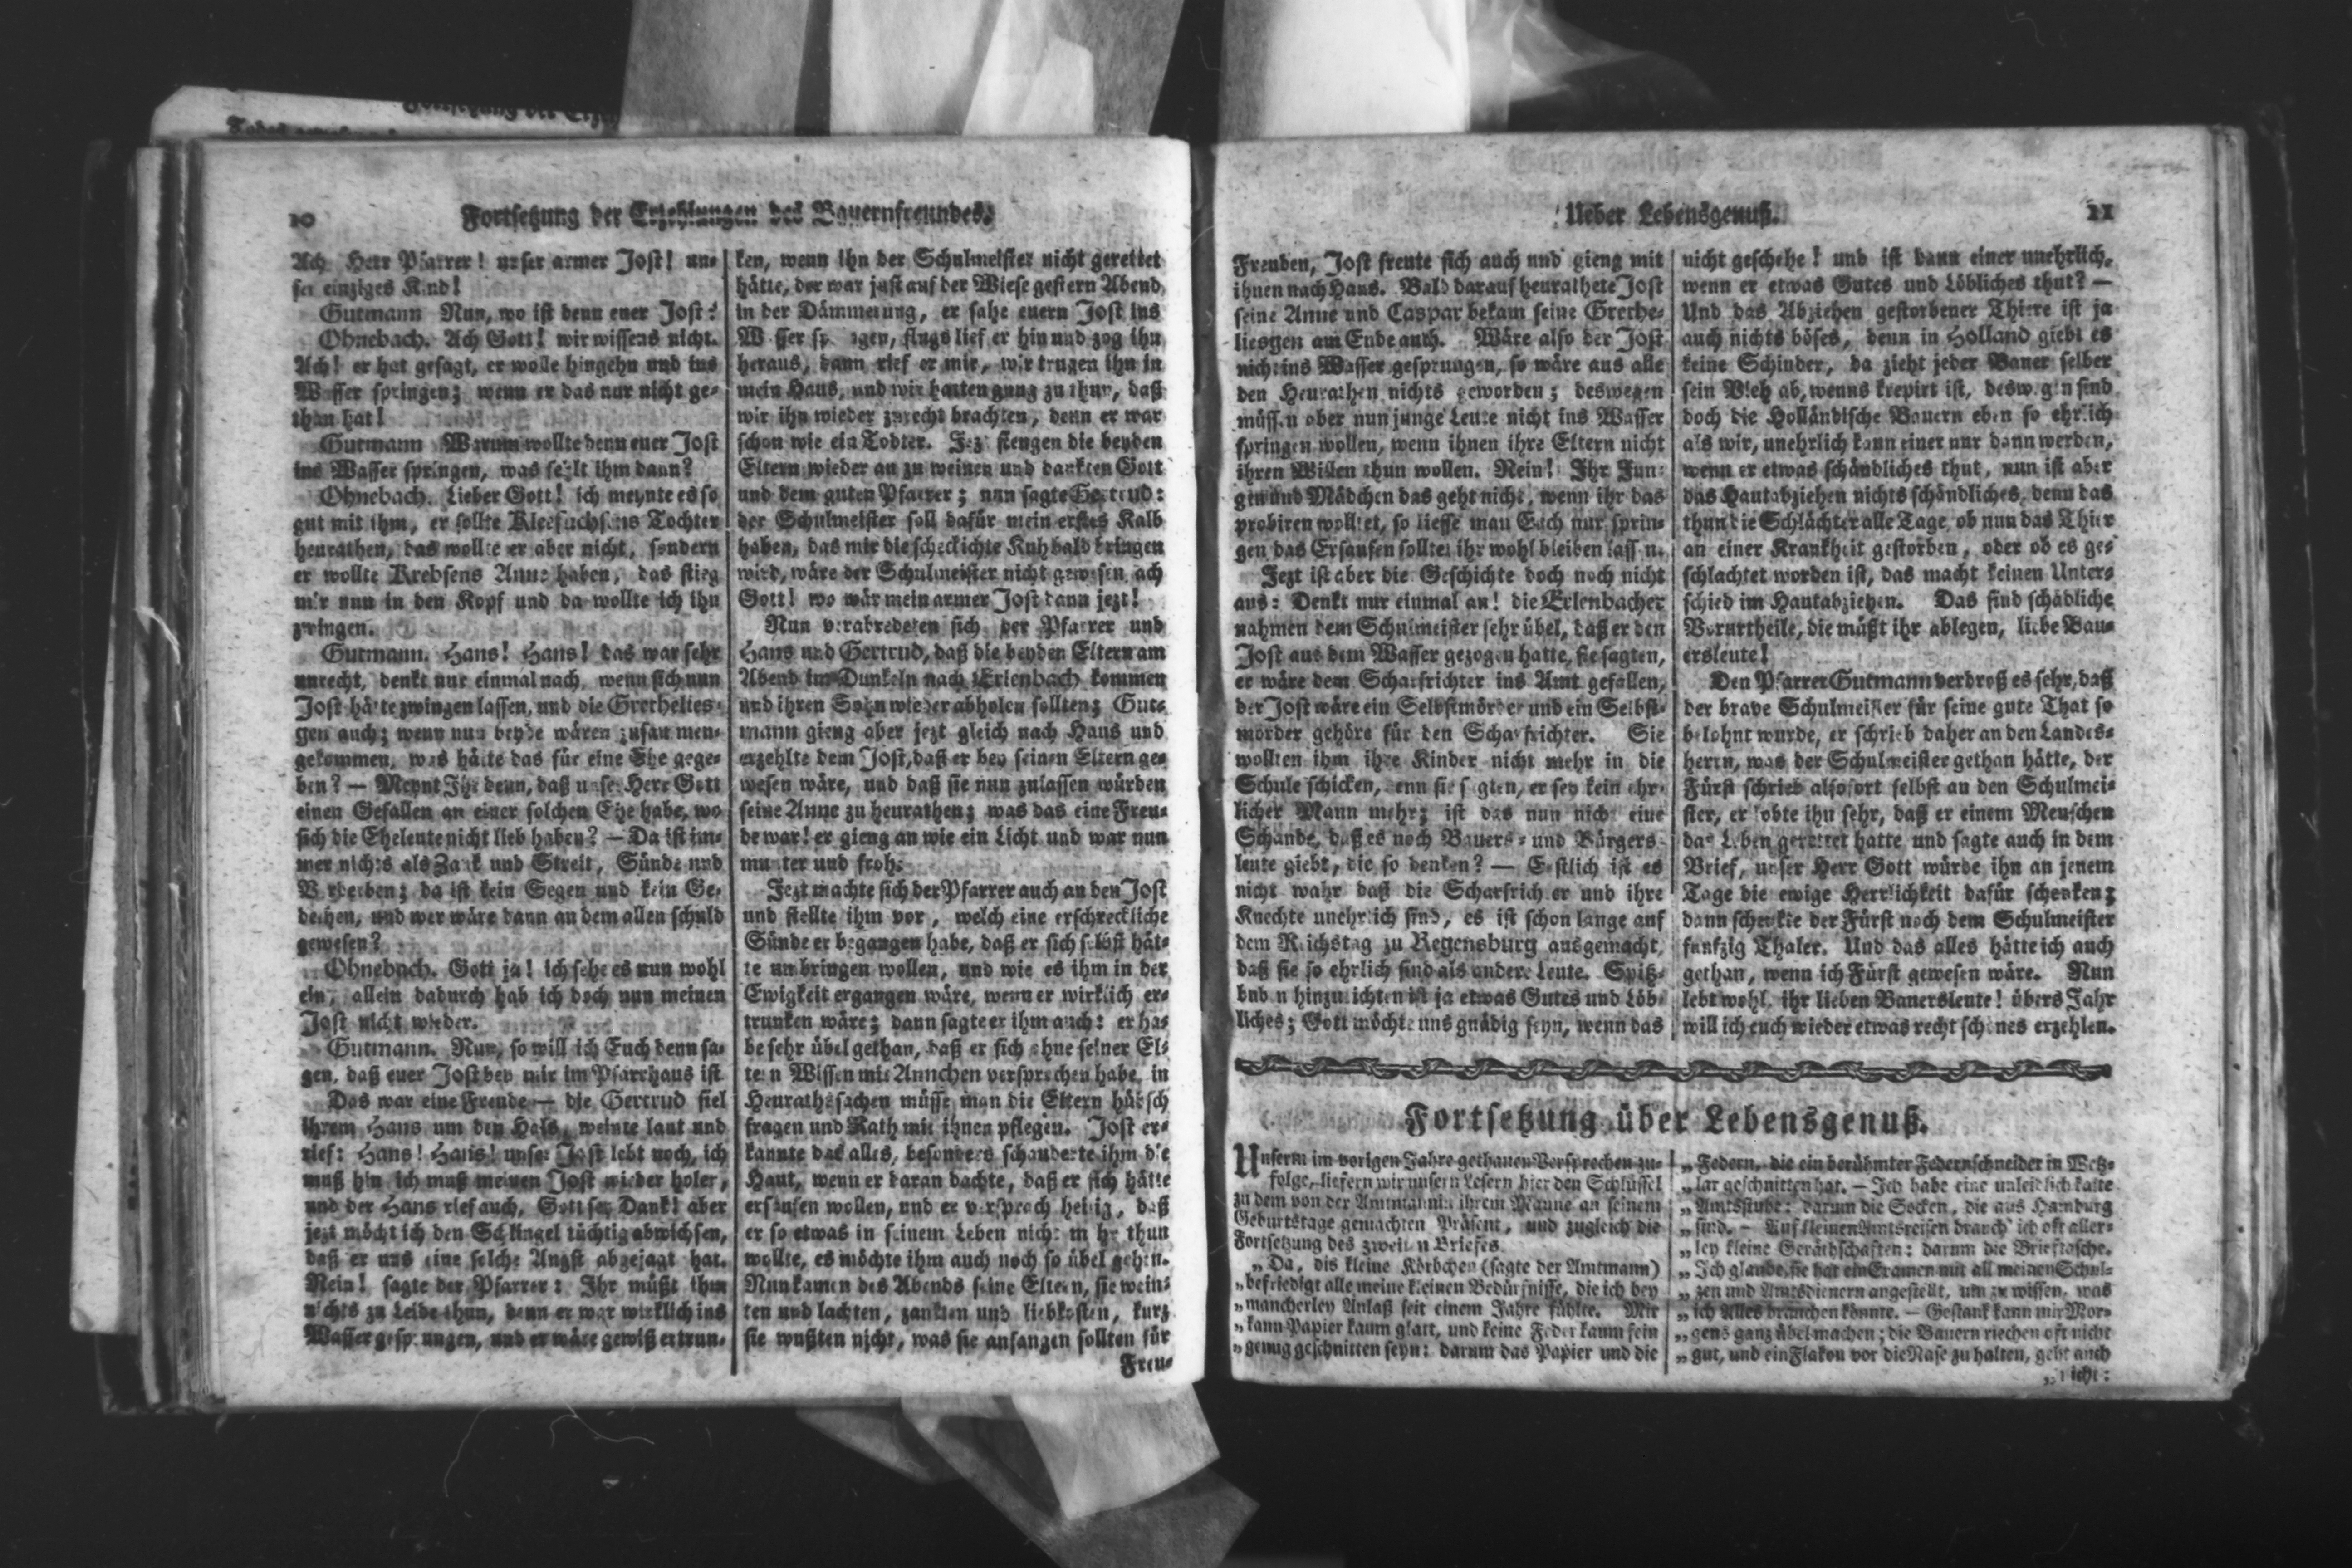 10
Fortsetzung der Erzehlungen des Bauernfreundes.
Ach Herr Pfarrer! unser armer Jost! un-
ser einziges Kind!
Gutmann Nun, wo ist denn euer Jost?
Ohnebach. Ach Gott! wir wissens nicht.
Ach! er hat gesagt, er wolle hingehn und ins
Wasser springen; wenn er das nur nicht ge-
than hat!
Gutmann Warum wollte denn euer Jost
ins Wasser springen, was fehlt ihm dann?
Ohnebach. Lieber Gott! ich meynte es so
gut mit ihm, er sollte Kleefuchsens Tochter
heurathen, das wollte er aber nicht, sondern
er wollte Krebsens Anne haben, das stieg
mir nun in den Kopf und da wollte ich ihn
zwingen.
Gutmann. Hans! Hans! das war sehr
unrecht, denkt nur einmal nach, wenn sich nun
Jost hätte zwingen lassen, und die Grethelies-
gen auch; wenn nun beyde wären zusammen-
gekommen, was hätte das für eine Ehe gege-
ben? — Meynt Ihr denn, daß unser Herr Gott
einen Gefallen an einer solchen Ehe habe, wo
sich die Eheleute nicht lieb haben? — Da ist im-
mer nichts als Zank und Streit, Sünde und
Verderben; da ist kein Segen und kein Ge-
deihen, und wer wäre dann an dem allen schuld
gewesen?
Ohnebach. Gott ja! ich sehe es nun wohl
ein, allein dadurch hab ich doch nun meinen
Jost nicht wieder.
Gutmann. Nun, so will ich Euch denn sa-
gen, daß euer Jost bey mir im Pfarrhaus ist.
Das war eine Freude — die Gertrud fiel
ihrem Hans um den Hals, weinte laut und
rief: Hans! Hans! unser Jost lebt noch, ich
muß hin ich muß meinen Jost wieder holen,
und der Hans rief auch, Gott sey Dank! aber
jezt möcht ich den Schlingel tüchtig abwichsen,
daß er uns eine solche Angst abgejagt hat.
Nein! sagte der Pfarrer: Ihr müßt ihm
nichts zu Leide thun, denn er war wirklich ins
Wasser gesprungen, und er wäre gewiß ertrun-
ken, wenn ihn der Schulmeister nicht gerettet
hätte, der war just auf der Wiese gestern Abend
in der Dämmerung, er sahe euern Jost ins
Wasser springen, flugs lief er hin und zog ihn
heraus, dann rief er mir, wir trugen ihn in
mein Haus, und wir hatten gnug zu thun, daß
wir ihn wieder zurecht brachten, denn er war
schon wie ein Todter. Jezt fiengen die beyden
Eltern wieder an zu weinen und dankten Gott
und dem guten Pfarrer; nun sagte Gertrud:
der Schulmeister soll dafür mein erstes Kalb
haben, das mir die scheckichte Kuh bald bringen
wird, wäre der Schulmeister nicht gewesen, ach
Gott! wo wär mein armer Jost dann jezt!
Nun verabredeten sich der Pfarrer und
Hans und Gertrud, daß die beyden Eltern am
Abend im Dunkeln nach Erlenbach kommen
und ihren Sohn wieder abholen sollten; Gut-
mann gieng aber jezt gleich nach Haus und
erzehlte dem Jost, daß er bey seinen Eltern ge-
wesen wäre, und daß sie nun zulassen würden
seine Anne zu heurathen; was das eine Freu-
de war! er gieng an wie ein Licht und war nun
munter und froh.
Jezt machte sich der Pfarrer auch an den Jost
und stellte ihm vor, welch eine erschreckliche
Sünde er begangen habe, daß er sich selbst hät-
te umbringen wollen, und wie es ihm in der
Ewigkeit ergangen wäre, wenn er wirklich er-
trunken wäre; dann sagte er ihm auch: er ha-
be sehr übel gethan, daß er sich ohne seiner El-
tern Wissen mit Annchen versprechen habe, in
Heurathssachen müsse man die Eltern hübsch
fragen und Rath mit ihnen pflegen. Jost er-
kannte das alles, besonders schauderte ihm die
Haut, wenn er daran dachte, daß er sich hätte
ersäufen wollen, und er versprach heilig, daß
er so etwas in seinem Leben nicht mehr thun
wollte, es möchte ihm auch noch so übel gehen.
Nun kamen des Abends seine Eltern, sie wein-
ten und lachten, zankten und liebkosten, kurz
sie wußten nicht, was sie anfangen sollten für
Freu-
Ueber Lebensgenuß.
11
Freuden, Jost freute sich auch und gieng mit
ihnen nach Haus. Bald darauf heurathete Jost
seine Anne und Caspar bekam seine Grethe-
liesgen am Ende auch. Wäre also der Jost
nicht ins Wasser gesprungen, so wäre aus alle
den Heurathen nichts geworden; deswegen
müssen aber nun junge Leute nicht ins Wasser
springen wollen, wenn ihnen ihre Eltern nicht
ihren Willen thun wollen. Nein! Ihr Jun-
gen und Mädchen das geht nicht, wenn ihr das
probiren wolltet, so liesse man Euch nur sprin-
gen das Ersaufen solltet ihr wohl bleiben lassen.
Jezt ist aber die Geschichte doch noch nicht
aus: Denkt nur einmal an! die Erlenbacher
nahmen dem Schulmeister sehr übel, daß er den
Jost aus dem Wasser gezogen hatte, sie sagten,
er wäre dem Scharfrichter ins Amt gefallen,
der Jost wäre ein Selbstmörder und ein Selbst-
mörder gehöre für den Scharfrichter. Sie
wollten ihm ihre Kinder nicht mehr in die
Schule schicken, denn sie sagten, er sey kein ehr-
licher Mann mehr; ist das nun nicht eine
Schande, daß es noch Bauers- und Bürgers-
leute giebt, die so denken? — Erstlich ist es
nicht wahr daß die Scharfrichter und ihre
Knechte unehrlich sind, es ist schon lange auf
dem Reichstag zu Regensburg ausgemacht,
daß sie so ehrlich sind als andere Leute. Spitz-
buben hinzurichten ist ja etwas Gutes und Löb-
liches; Gott möchte uns gnädig seyn, wenn das
nicht geschehe! und ist dann einer unehrlich,
wenn er etwas Gutes und Löbliches thut? —
Und das Abziehen gestorbener Thiere ist ja
auch nichts böses, denn in Holland giebt es
keine Schinder, da zieht jeder Bauer selber
sein Vieh ab, wenns krepirt ist, deswegen sind
doch die Holländische Bauern eben so ehrlich
als wir, unehrlich kann einer nur dann werden,
wenn er etwas schändliches thut, nun ist aber
das Hautabziehen nichts schändliches, denn das
thun die Schlächter alle Tage, ob nun das Thier
an einer Krankheit gestorben, oder ob es ge-
schlachtet worden ist, das macht keinen Unter-
schied im Hautabziehen. Das sind schädliche
Vorurtheile, die müßt ihr ablegen, liebe Bau-
ersleute!
Den Pfarrer Gutmann verdroß es sehr, daß
der brave Schulmeister für seine gute That so
belohnt wurde, er schrieb daher an den Landes-
herrn, was der Schulmeister gethan hätte, der
Fürst schrieb alsofort selbst an den Schulmei-
ster, er lobte ihn sehr, daß er einem Menschen
das Leben gerettet hatte und sagte auch in dem
Brief, unser Herr Gott würde ihn an jenem
Tage die ewige Herrlichkeit dafür schenken;
dann schenkte der Fürst noch dem Schulmeister
funfzig Thaler. Und das alles hätte ich auch
gethan, wenn ich Fürst gewesen wäre. Nun
lebt wohl, ihr lieben Bauersleute! übers Jahr
will ich euch wieder etwas recht schönes erzehlen.
Fortsetzung über Lebensgenuß.
Unserm im vorigen Jahre gethanen Versprechen zu-
folge, liefern wir unsern Lesern hier den Schlüssel
zu dem von der Amtmännin ihrem Manne an seinem
Geburtstage gemachten Präsent, und zugleich die
Fortsetzung des zweiten Briefes.
„Da, dis kleine Körbchen (sagte der Amtmann)
„befriedigt alle meine kleinen Bedürfnisse, die ich bey
„mancherley Anlaß seit einem Jahre fühlte. Mir
„kann Papier kaum glatt, und keine Feder kaum fein
„genug geschnitten seyn: darum das Papier und die
„Federn, die ein berühmter Federnschneider in Wetz-
„lar geschnitten hat. — Ich habe eine unleidlich kalte
„Amtsstube: darum die Socken, die aus Hamburg
„sind. — Auf kleinen Amtsreisen brauch' ich oft aller-
„ley kleine Geräthschaften: darum die Brieftasche.
„Ich glaube, sie hat ein Examen mit all meinen Schul-
„zen und Amtsdienern angestellt, um zu wissen, was
„ich Alles brauchen könnte. — Gestank kann mir Mor-
„gens ganz übel machen; die Bauern riechen oft nicht
„gut, und ein Flakon vor die Nase zu halten, geht auch
„nicht: